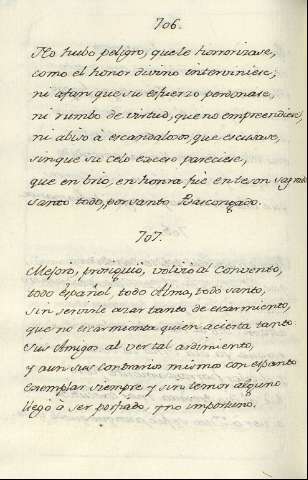 706.
No hubo peligro, que le horrorizase,
como el honor divino interviniese;
ni afan que su esfuerzo perdonase,
ni rumbo de virtud, que no emprendiese,
ni aliso à escandalosos, que escusase,
sin que su celo excero pareciese,
que en brio, en honra fuè en teson sagrado
santo todo, por santo Bascongado.
707.
Mejorò, prosiguiò, volviò al convento,
todo Español, todo Alma, todo santo,
sin servirle azar tanto de escarmiento,
que no escarmienta quien acierta tanto
sus Amigos al ver tal ardimiento,
y aun sus contrarios mismos con espanto
exemplar siempre y sin temor alguno
llegò à ser porfiado, y no importuno.